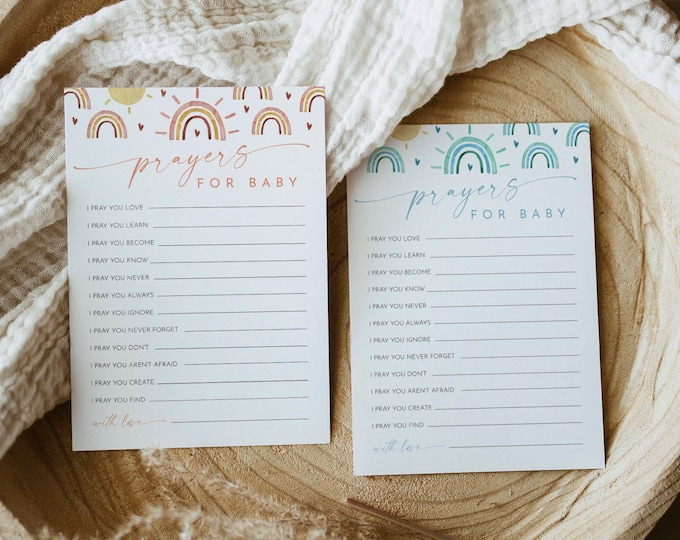 prayers
FOR BABY
I PRAY YOU LOVE
I PRAY YOU LEARN
I PRAY YOU BECOME
I PRAY YOU KNOW
I PRAY YOU NEVER
I PRAY YOU ALWAYS
I PRAY YOU IGNORE
I PRAY YOU NEVER FORGET
I PRAY YOU DON'T
I PRAY YOU AREN'T AFRAID
I PRAY YOU CREATE
I PRAY YOU FIND
with love
prayers
FOR BABY
I PRAY YOU LOVE
I PRAY YOU LEARN
I PRAY YOU BECOME
I PRAY YOU KNOW
I PRAY YOU NEVER
I PRAY YOU ALWAYS
I PRAY YOU IGNORE
I PRAY YOU NEVER FORGET
I PRAY YOU DON'T
I PRAY YOU AREN'T AFRAID
I PRAY YOU CREATE
I PRAY YOU FIND
with love